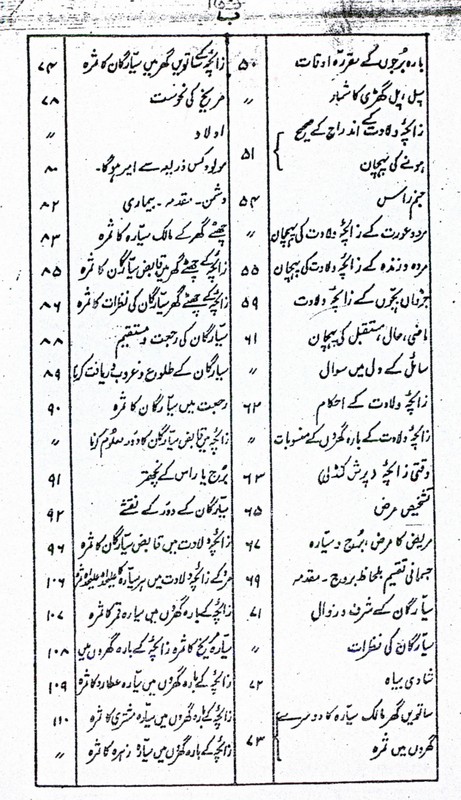 ب
بارہ برجوں کے مقررہ اوقات ۵۰
پل، پل گھڑی کا شمار "
زائچہ ولادت کے اندراج کے صحیح
ہونے کی پہچان ۵۱
جنم راس ۵۴
مرد و عورت کے زائچہ ولادت کی پہچان "
مردہ و زندہ کے زائچہ ولادت کی پہچان ۵۵
جڑواں بچوں کے زائچہ ولادت ۵۹
ماضی، حال، مستقبل کی پہچان ۶۱
سائل کے دل میں سوال "
زائچہ ولادت کے احکام ۶۲
زائچہ ولادت کے بارہ گھروں کے منسوبات "
وقتی زائچہ (پرشن کنڈلی) ۶۳
تشخیص مرض ۶۵
مریض کا مرض، بروج و سیارہ ۶۷
جسمانی تقسیم بلحاظ بروج - مقدمہ ۶۹
سیارگان کے شرف و زوال ۷۱
سیارگان کی نظرات "
شادی بیاہ ۷۲
ساتویں گھر مالک سیارہ کا دوسرے
گھروں میں ثمرہ ۷۳
زائچہ کے ساتویں گھر میں سیارگان کا ثمرہ ۷۴
مریخ کی نحوست ۷۸
اولاد "
مولود کس ذریعہ سے امیر ہوگا - ۸۰
دشمن - مقدمہ - بیماری ۸۲
چھٹے گھر کے مالک سیارہ کا ثمرہ ۸۳
زائچہ کے چھٹے گھر میں قابض سیارگان کا ثمرہ ۸۵
زائچہ کے چھٹے گھر سیارگان کی نظرات کا ثمرہ ۸۶
سیارگان کی رجعت و مستقیم ۸۸
سیارگان کے طلوع و غروب دریافت کرنا ۸۹
رجعت میں سیارگان کا ثمرہ ۹۰
زائچہ میں قابض سیارگان کا دور معلوم کرنا "
برج یا راس کے نچھتر ۹۱
سیارگان کے دور کے نقشے ۹۲
زائچہ ولادت میں قابض سیارگان کا ثمرہ ۹۶
کے زائچہ ولادت میں ہر سیارہ کا علیحدہ علیحدہ ۱۰۶
زائچہ کے بارہ گھروں میں سیارہ قمر کا ثمرہ ۱۰۷
سیارہ مریخ کا ثمرہ زائچہ کے بارہ گھروں میں ۱۰۸
زائچہ کے بارہ گھروں میں سیارہ عطارد کا ثمرہ ۱۰۹
زائچہ کے بارہ گھروں میں سیارہ مشتری کا ثمرہ ۱۱۰
زائچہ کے بارہ گھروں میں سیارہ زہرہ کا ثمرہ "